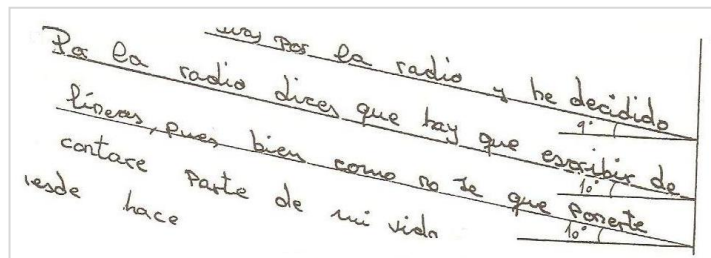 por la radio y he decidido
Por la radio dices que hay que escribir de
líneas, pues bien como no se que ponerte
contare Parte de mi vida
desde hace
9°
10°
10°